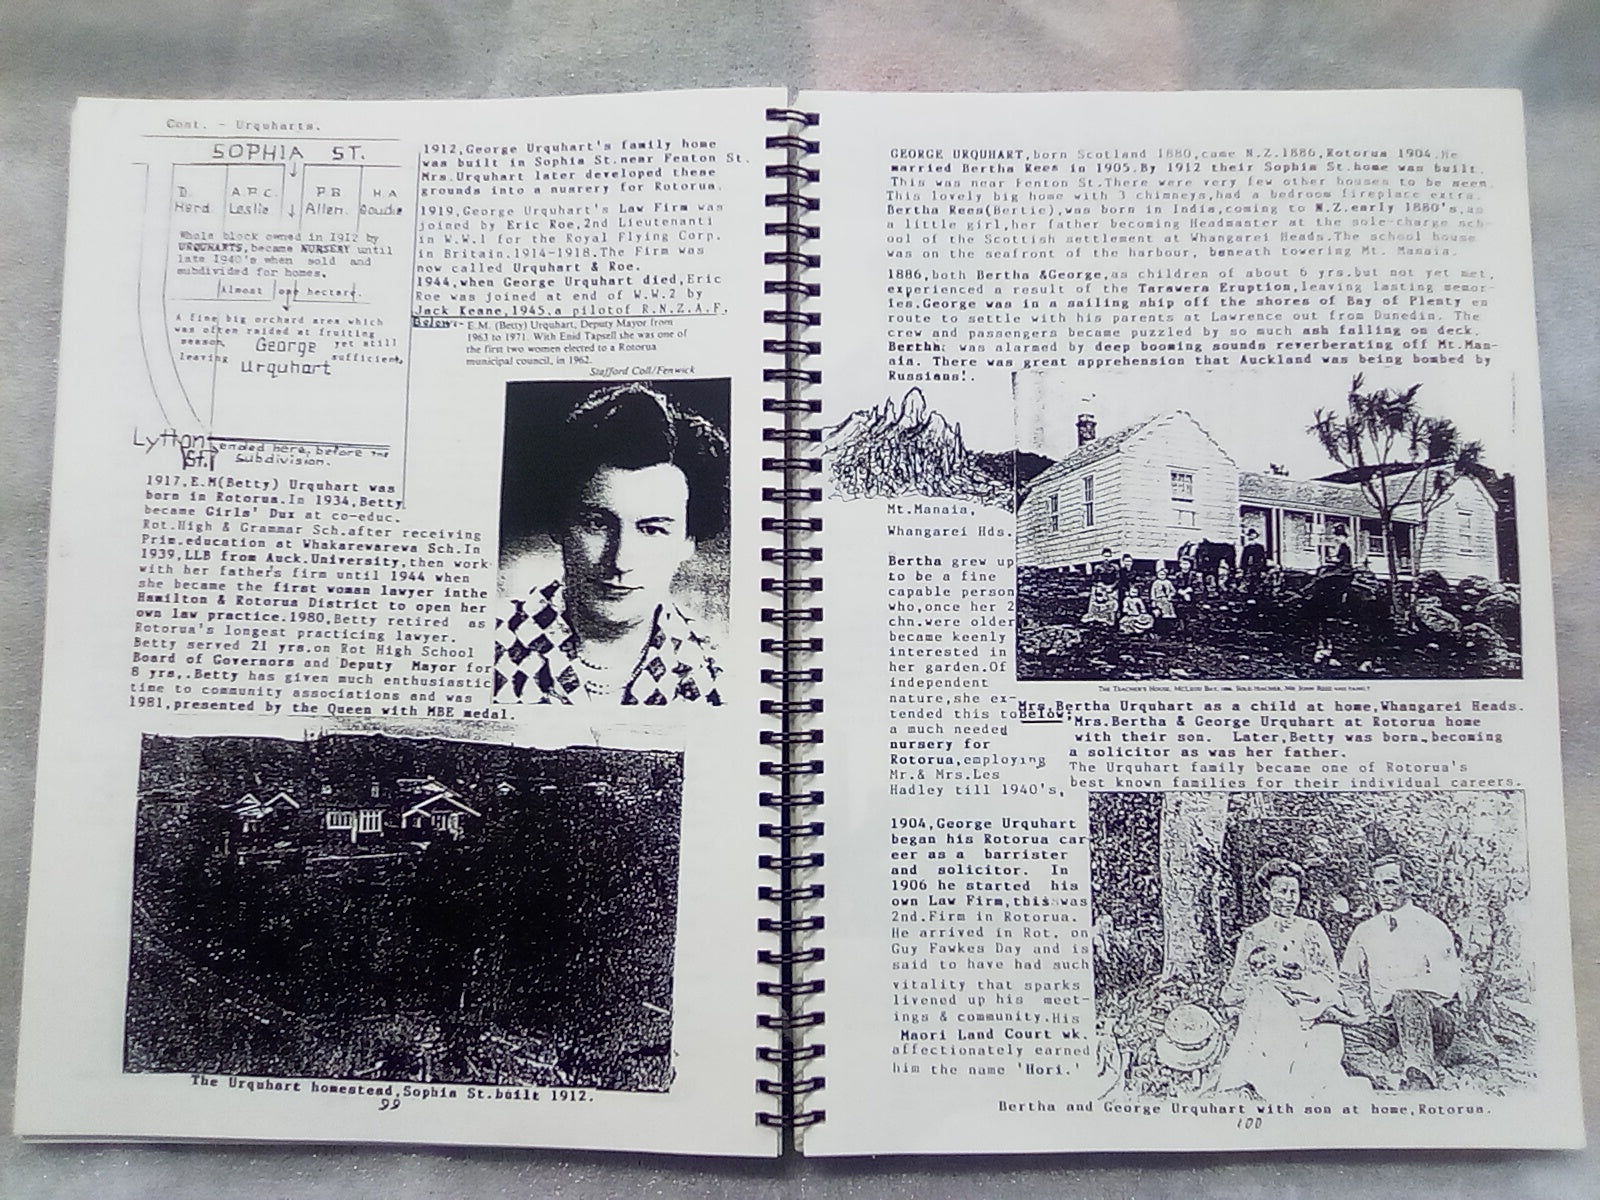 Cont. - Urquharts.
SOPHIA ST.
D. Herd.
A.P.C. Leslie
P.B. Allen.
H.A. Goudie
Whole block owned in 1912 by
URQUHARTS, became NURSERY until
late 1940's when sold and
subdivided for homes.
Almost one hectare.
A fine big orchard area which
was often raided at fruiting
season, yet still
leaving sufficient.
George
Urquhart
Lytton
St.
ended here, before the
Subdivision.
1912,George Urquhart's family home
was built in Sophia St.near Fenton St.
Mrs.Urquhart later developed these
grounds into a nusrery for Rotorua.
1919,George Urquhart's Law Firm was
joined by Eric Roe,2nd Lieutenanti
in W.W.1 for the Royal Flying Corp.
in Britain.1914-1918.The Firm was
now called Urquhart & Roe.
1944,when George Urquhart died,Eric
Roe was joined at end of W.W.2 by
Jack Keane,1945,a pilotof R.N.Z.A.F.
Below:-
E.M. (Betty) Urquhart, Deputy Mayor from
1963 to 1971. With Enid Tapsell she was one of
the first two women elected to a Rotorua
municipal council, in 1962.
Stafford Coll/Fenwick
1917,E.M(Betty) Urquhart was
born in Rotorua.In 1934,Betty
became Girls' Dux at co-educ.
Rot.High & Grammar Sch.after receiving
Prim.education at Whakarewarewa Sch.In
1939,LLB from Auck.University,then work
with her father's firm until 1944 when
she became the first woman lawyer inthe
Hamilton & Rotorua District to open her
own law practice.1980,Betty retired as
Rotorua's longest practicing lawyer.
Betty served 21 yrs.on Rot High School
Board of Governors and Deputy Mayor for
8 yrs,.Betty has given much enthusiastic
time to community associations and was
1981,presented by the Queen with MBE medal.
The Urquhart homestead,Sophia St.built 1912.
99
GEORGE URQUHART,born Scotland 1880,came N.Z.1886,Rotorua 1904.He
married Bertha Rees in 1905.By 1912 their Sophia St.home was built.
This was near Fenton St.There were very few other houses to be seen.
This lovely big home with 3 chimneys,had a bedroom fireplace extra.
Bertha Rees(Bertie),was born in India,coming to N.Z.early 1880's,as
a little girl,her father becoming Headmaster at the sole-charge sch-
ool of the Scottish settlement at Whangarei Heads.The school house
was on the seafront of the harbour, beneath towering Mt. Manaia.
1886,both Bertha &George,as children of about 6 yrs.but not yet met,
experienced a result of the Tarawera Eruption,leaving lasting memor-
ies.George was in a sailing ship off the shores of Bay of Plenty en
route to settle with his parents at Lawrence out from Dunedin. The
crew and passengers became puzzled by so much ash falling on deck.
Bertha was alarmed by deep booming sounds reverberating off Mt.Man-
aia. There was great apprehension that Auckland was being bombed by
Russians!.
Mt.Manaia,
Whangarei Hds.
THE TEACHER'S HOUSE, MCLEOD BAY, SOLE-TEACHER, MR JOHN REES AND FAMILY
Bertha grew up
to be a fine
capable person
who,once her 2
chn.were older
became keenly
interested in
her garden.Of
independent
nature,she ex-
tended this to
a much needed
nursery for
Rotorua,employing
Mr.& Mrs.Les
Hadley till 1940's.
Mrs.Bertha Urquhart as a child at home,Whangarei Heads.
Below:
Mrs.Bertha & George Urquhart at Rotorua home
with their son. Later,Betty was born,becoming
a solicitor as was her father.
The Urquhart family became one of Rotorua's
best known families for their individual careers.
1904,George Urquhart
began his Rotorua car-
eer as a barrister
and solicitor. In
1906 he started his
own Law Firm,this was
2nd.Firm in Rotorua.
He arrived in Rot. on
Guy Fawkes Day and is
said to have had such
vitality that sparks
livened up his meet-
ings & community.His
Maori Land Court wk.
affectionately earned
him the name 'Hori.'
Bertha and George Urquhart with son at home,Rotorua.
100